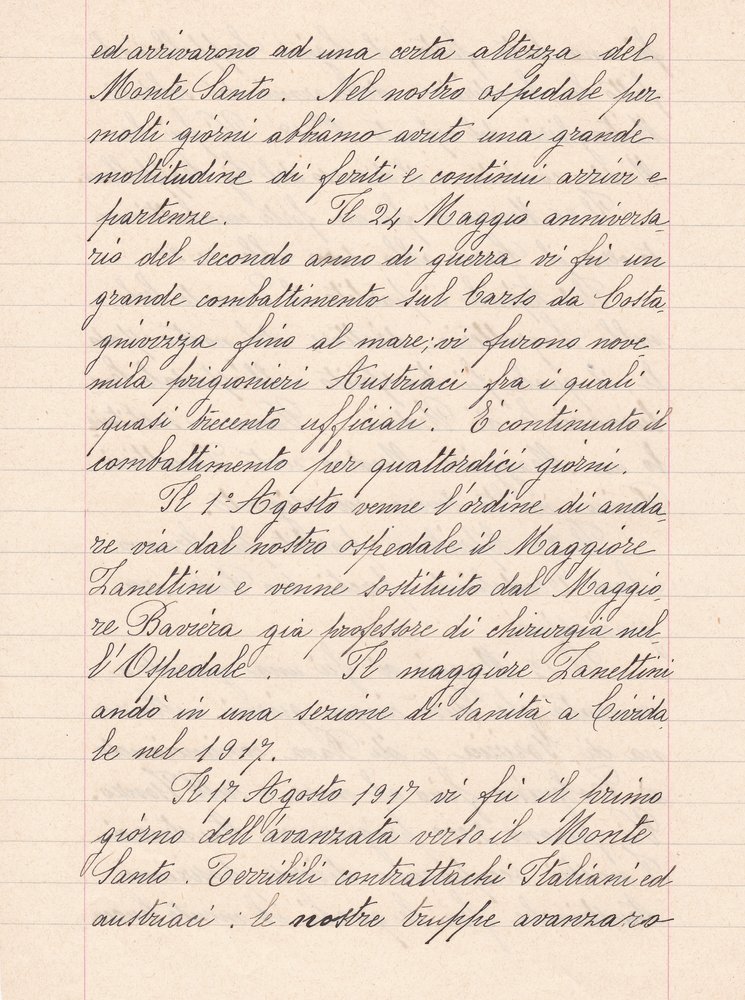 ed arrivarono ad una certa altezza del
Monte Santo. Nel nostro ospedale per
molti giorni abbiamo avuto una grande
moltitudine di feriti e continui arrivi e
partenze. Il 24 Maggio anniversa-
rio del secondo anno di guerra vi fu un
grande combattimento sul Carso da Costa-
gnivizza fino al mare; vi furono nove-
mila prigionieri Austriaci fra i quali
quasi trecento ufficiali. E' continuato il
combattimento per quattordici giorni.
Il 1° Agosto venne l'ordine di anda-
re via dal nostro ospedale il Maggiore
Zanettini e venne sostituito dal Maggio-
re Baviera gia professore di chirurgia nel-
l'Ospedale. Il maggiore Zanettini
andò in una sezione di sanità a Civida-
le nel 1917.
Il 17 Agosto 1917 vi fu il primo
giorno dell'avanzata verso il Monte
Santo. Terribili contrattachi Italiani ed
austriaci: le nostre truppe avanzaro